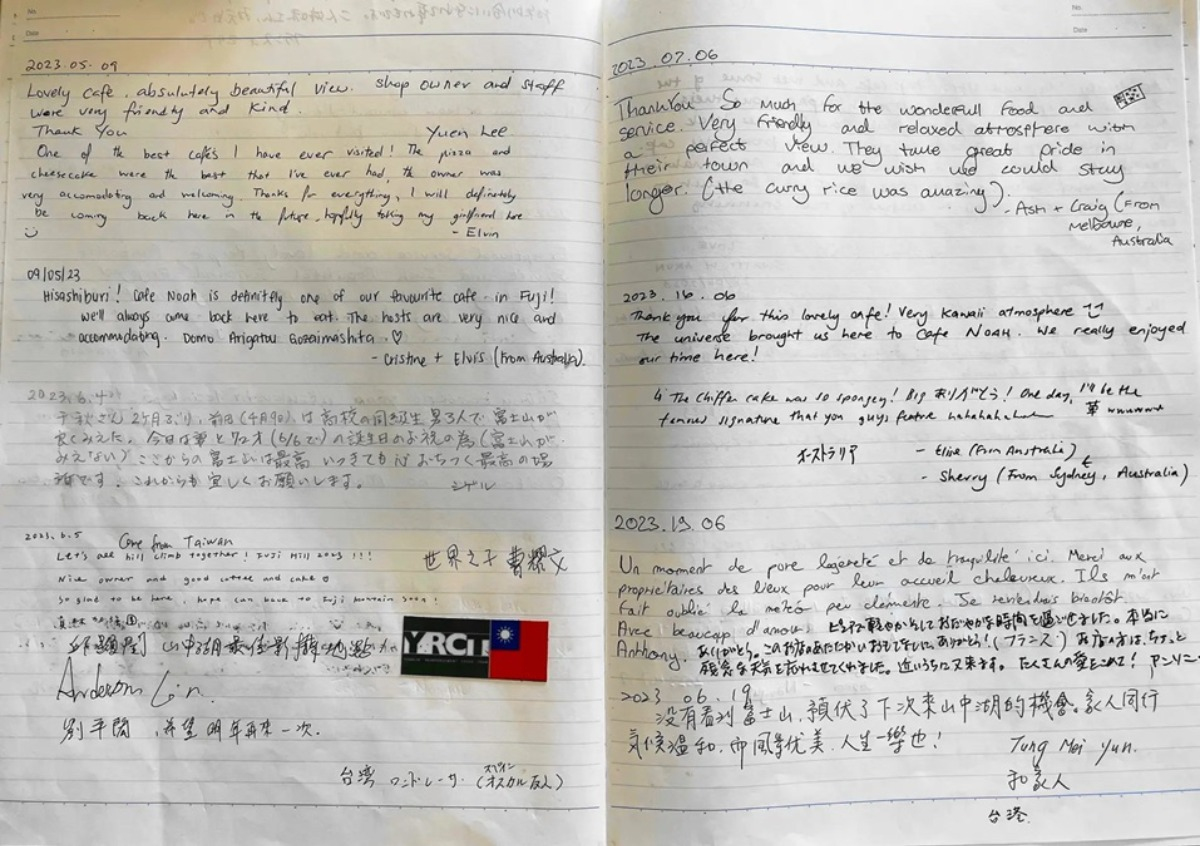 No.
Date
2023.05.09
Lovely cafe, absolutely beautiful view. shop owner and staff
were very friendly and kind.
Thank You
Yuen Lee
One of the best cafes I have ever visited! The pizza and
cheesecake were the best that I've ever had, the owner was
very accomodating and welcoming. Thanks for everything, I will definately
be coming back here in the future, hopfully taking my girlfriend here
- Elvin
09/05/23
Hisashiburi! Cafe Noah is definitely one of our favourite cafe in Fuji!
we'll always come back here to eat. The hosts are very nice and
accommodating. Domo Arigatou Gozaimashita. ♡
- Cristine + Elvis (From Australia).
2023.6.4
千秋さん 2ヶ月ぶり、前回(4月9日)は高校の同級生男3人で富士山が
良くみえた。今日は妻と72才(6/6で)の誕生日のお祝の為(富士山が
みえない)ここからの富士山は最高 いつきても心おちつく最高の場
所です。これからも宜しくお願いします。
シゲル
2023.6.5
Come from Taiwan
Let's all hill climb together! Fuji Hill 2023 !!!
Nice owner and good coffee and cake
So glad to be here, hope can back to Fuji mountain soon!
世界之子 曹耀文
山中湖最佳
YARCIT
Anderson Lin.
劉平 希望明年再來一次.
台湾 ロードレーサー (オスカル友人)
スペイン
No.
Date
2023.07.06
Thankyou So much for the wonderfull food and
service. Very friendly and relaxed atmosphere with
a perfect view. They take great pride in
their town and we wish we could stay
longer. (the curry rice was amazing).
- Ash + Craig (From
Melbourne,
Australia
2023.16.06
Thank you for this lovely cafe! Very Kawaii atmosphere
The universe brought us here to Cafe Noah. We really enjoyed
our time here!
The chiffon cake was so spongey! Big ありがとう! One day, I'll be the
famous signature that you guys feature hahahahah 草 wwwwww
オーストラリア
- Elise (From Australia)
- Sherry (From Sydney, Australia)
2023.19.06
Un moment de pure légereté et de tranquilité ici. Merci aux
propriétaires des lieux pour leur accueil chaleureux. Ils m'ont
fait oublié la météo peu clémente. Je reviendrais bientôt.
Avec beaucoup d'amour,
Anthony.
軽やかでおだやかな時間を過ごせました。本当に
ありがとう。このお店のあたたかいおもてなしにありがとう!(フランス) お店の方は、ちょっと
残念な天気を忘れさせてくれました。近いうちに又来ます。たくさんの愛をこめて! アンソニー
2023 06.19
没有看到富士山,預伏了下次來山中湖的機會。家人同行
気候温和,而風景优美.人生一樂也!
Tung Mei Yun.
和家人
台湾